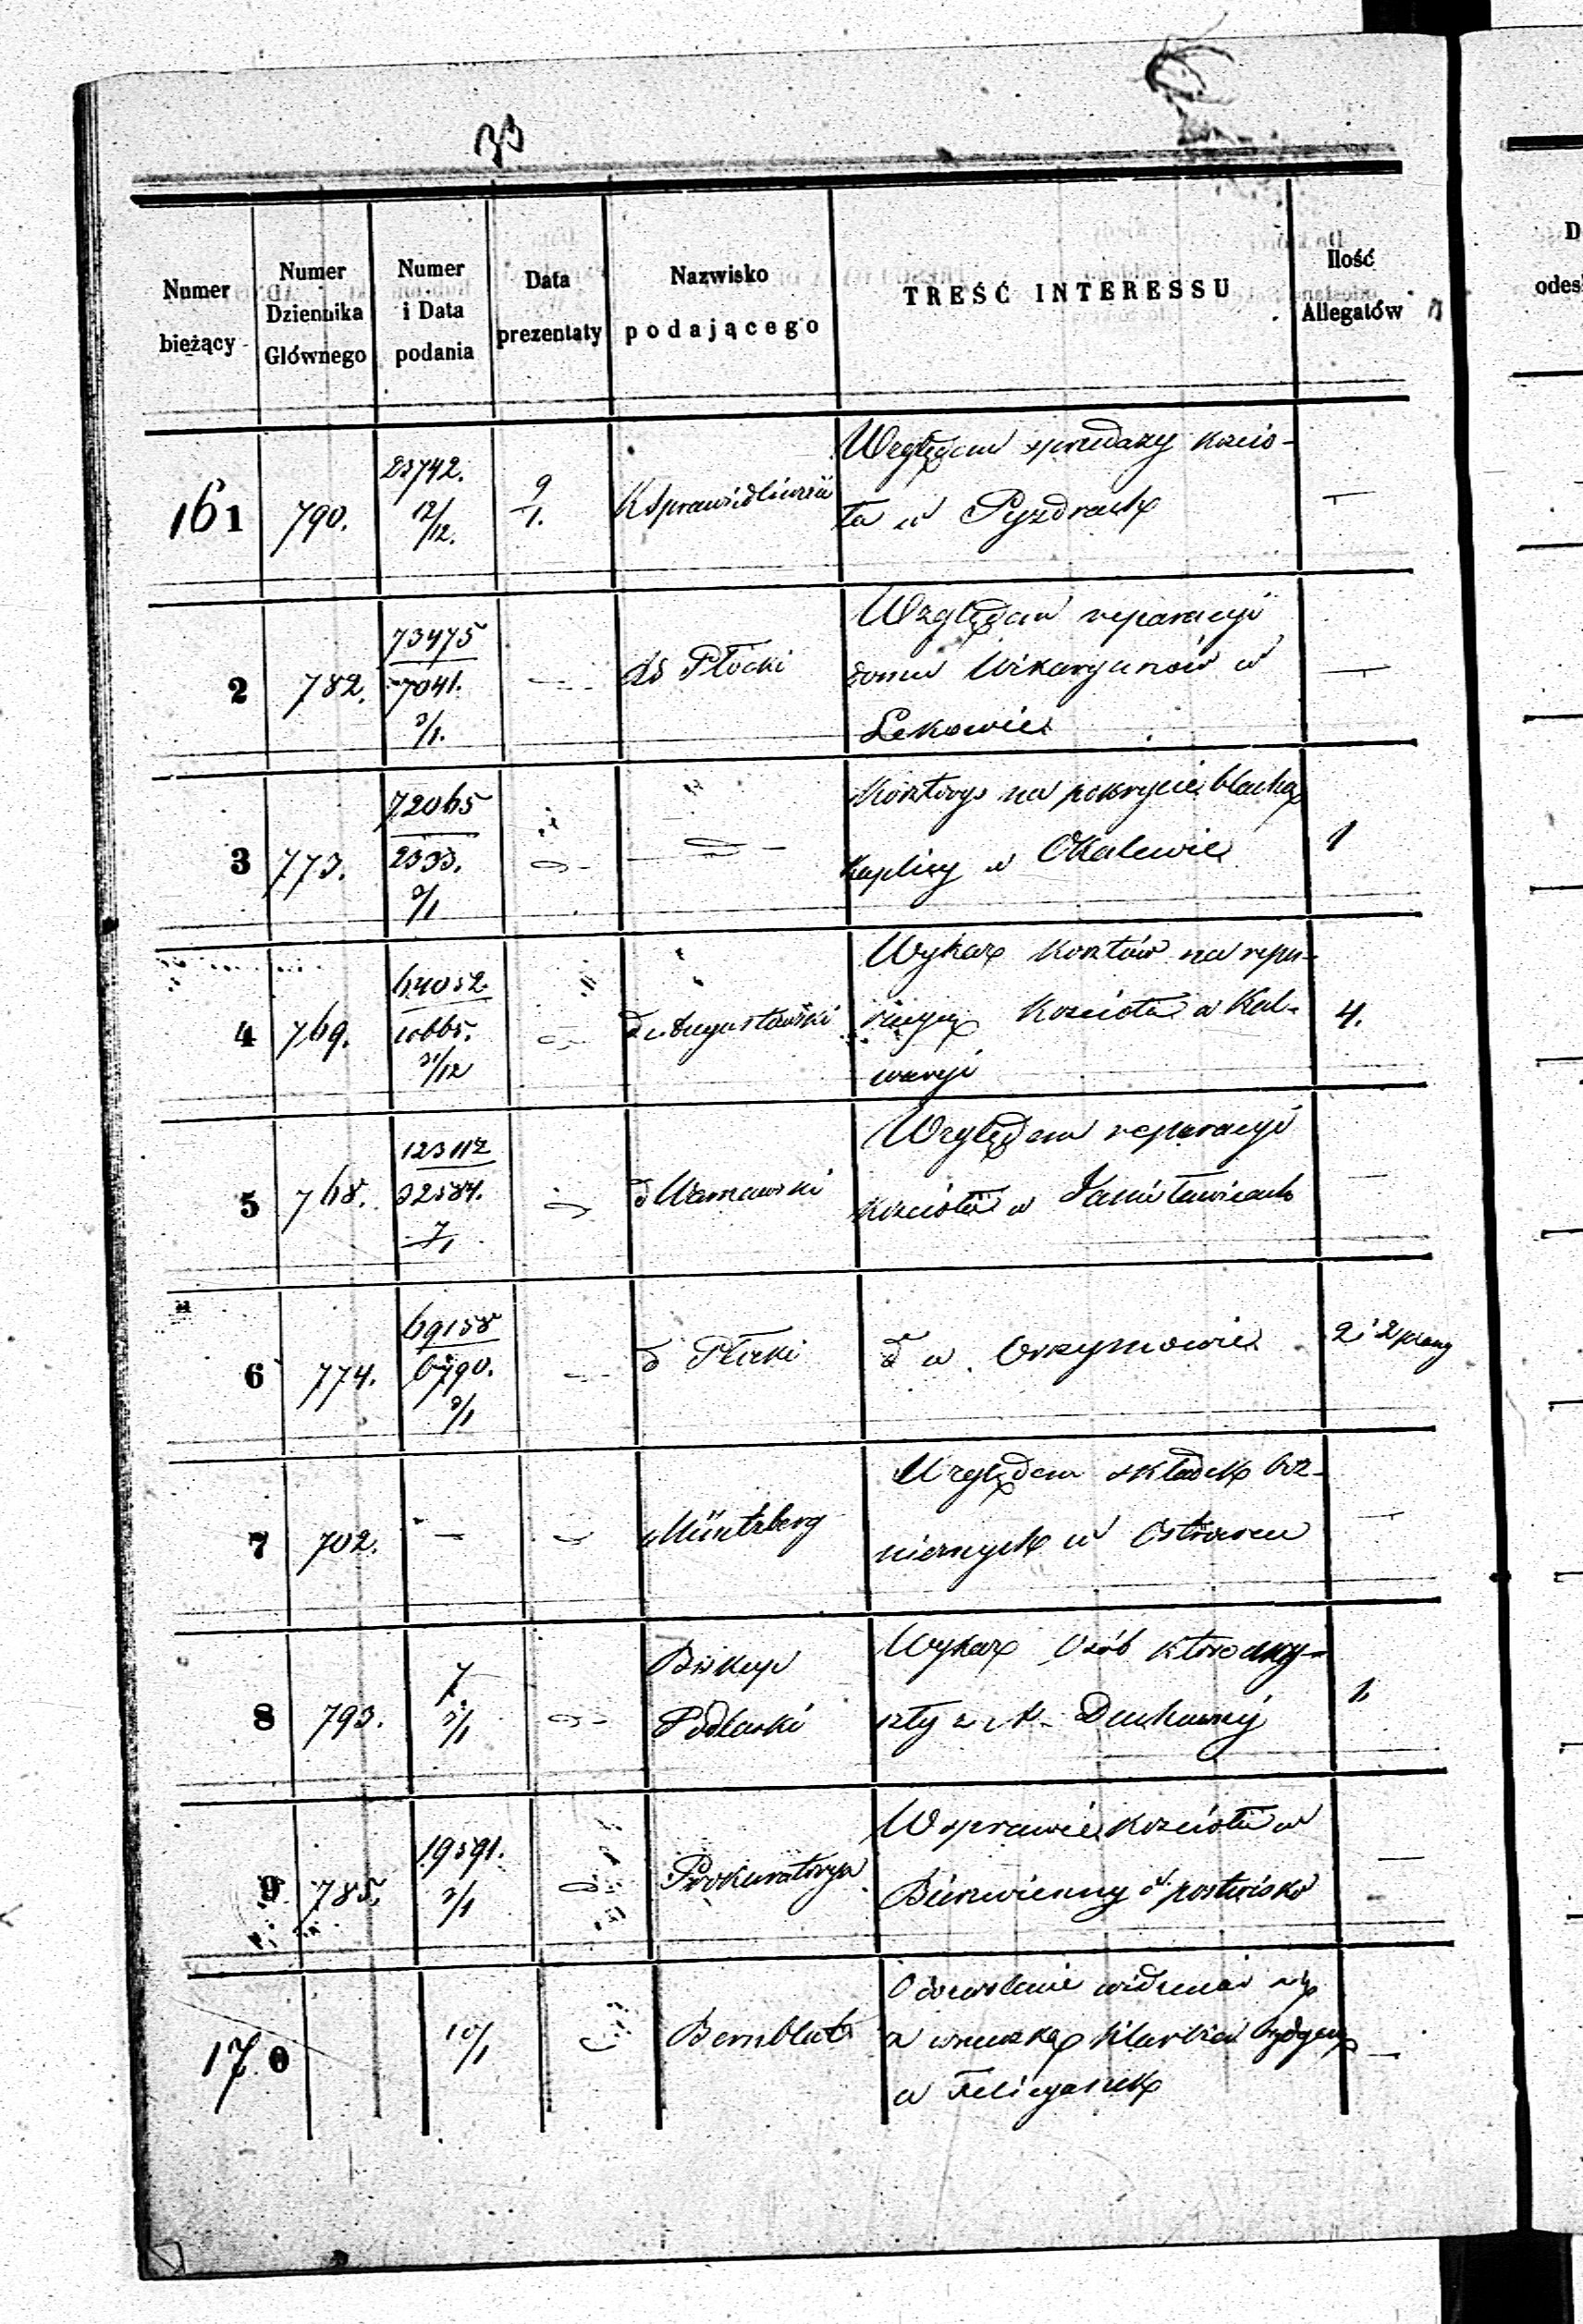 33
Numer bieżący
Numer Dziennika Głównego
Numer i Data podania
Data prezentaty
Nazwisko podającego
TREŚĆ INTERESSU
Ilość Allegatów
D
odes
161 790. 23742. 12/12. 9/1. Względem sprzedaży kościo-
ła w Pyzdrach —
2 782. 73475 7041. 3/1. — Płocki Względem reparacyi
domu Wikaryuszów w
Lekowie —
3 773. 72065 2533. 3/1 Kosztorys na pokrycie blachą
kaplicy w Okalewie 1
4 769. 64052 10665. 31/12 Augustowski Wykaz kosztów na repa-
racyę kościoła w Kal-
waryi 4.
5 768. 123112 32584. 7/1 Warszawski Względem reparacyi
kościoła w Janisławicach —
6 774. 69158 6790. 3/1 — Płocki w Orszymowie 2 i 2 plany
7 702. — — Müntzberg Względem składek boż-
niczych w Ostrowcu —
8 793. 7. 3/1 Biskup
Podlaski
Wykaz Osób które
szły z Duchownej 1.
9 785. 19591. 3/1 Prokuratorya W sprawie kościoła w
Bierzwienny o —
170 10/1 Bernblut O dozwolenie widzenia się
z wnuczką
u Felicyanek —